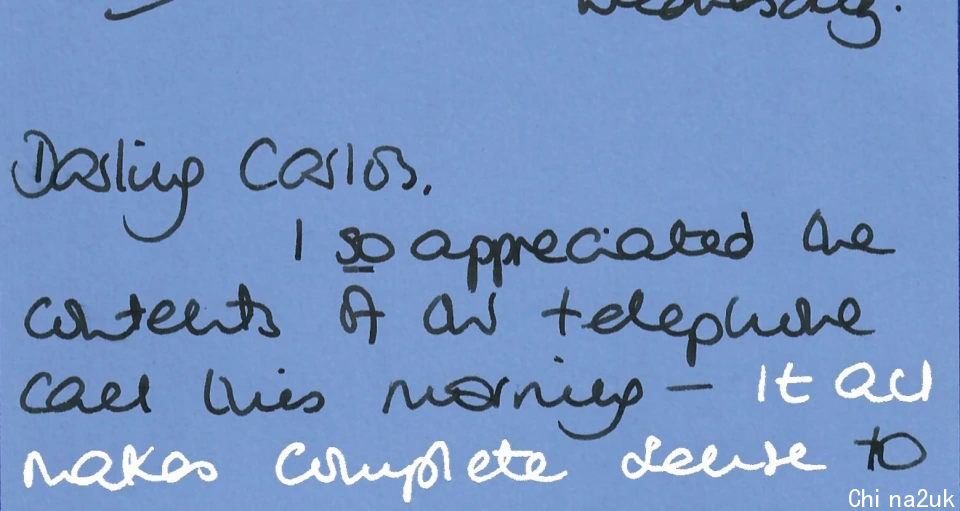 Wednesday.
Darling Carlos,
I so appreciated the
contents of our telephone
call this morning — It all
makes complete sense to
Chi na2uk